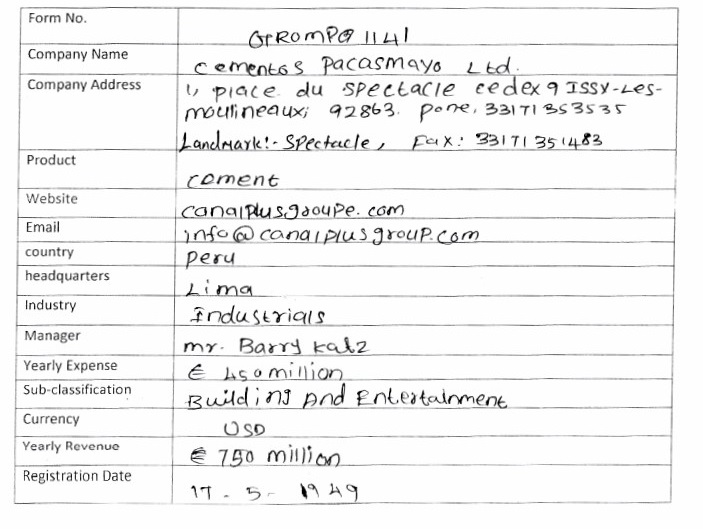 Form No. GTROMPQ 1141
Company Name Cementos Pacasmayo Ltd.
Company Address 1, place du spectacle cedex 9 ISSY-Les-
moulineaux; 92863. pone. 33171353535
Landmark:- Spectacle, Fax: 33171351483
Product cement
Website canalplusgroupe.com
Email info@canalplusgroup.com
country peru
headquarters Lima
Industry Industrials
Manager mr. Barry Katz
Yearly Expense € 450 million
Sub-classification Building And Entertainment
Currency USD
Yearly Revenue € 750 million
Registration Date 17-5-1949